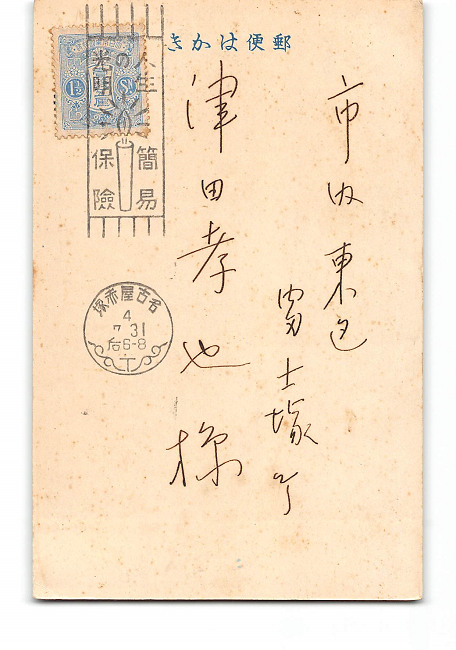 郵便はかき
市内東区
冨士塚町
津田孝也様
人生の
光明
簡易
保険
1½ Sn
名古屋赤塚
4
7 31
后6-8
丁